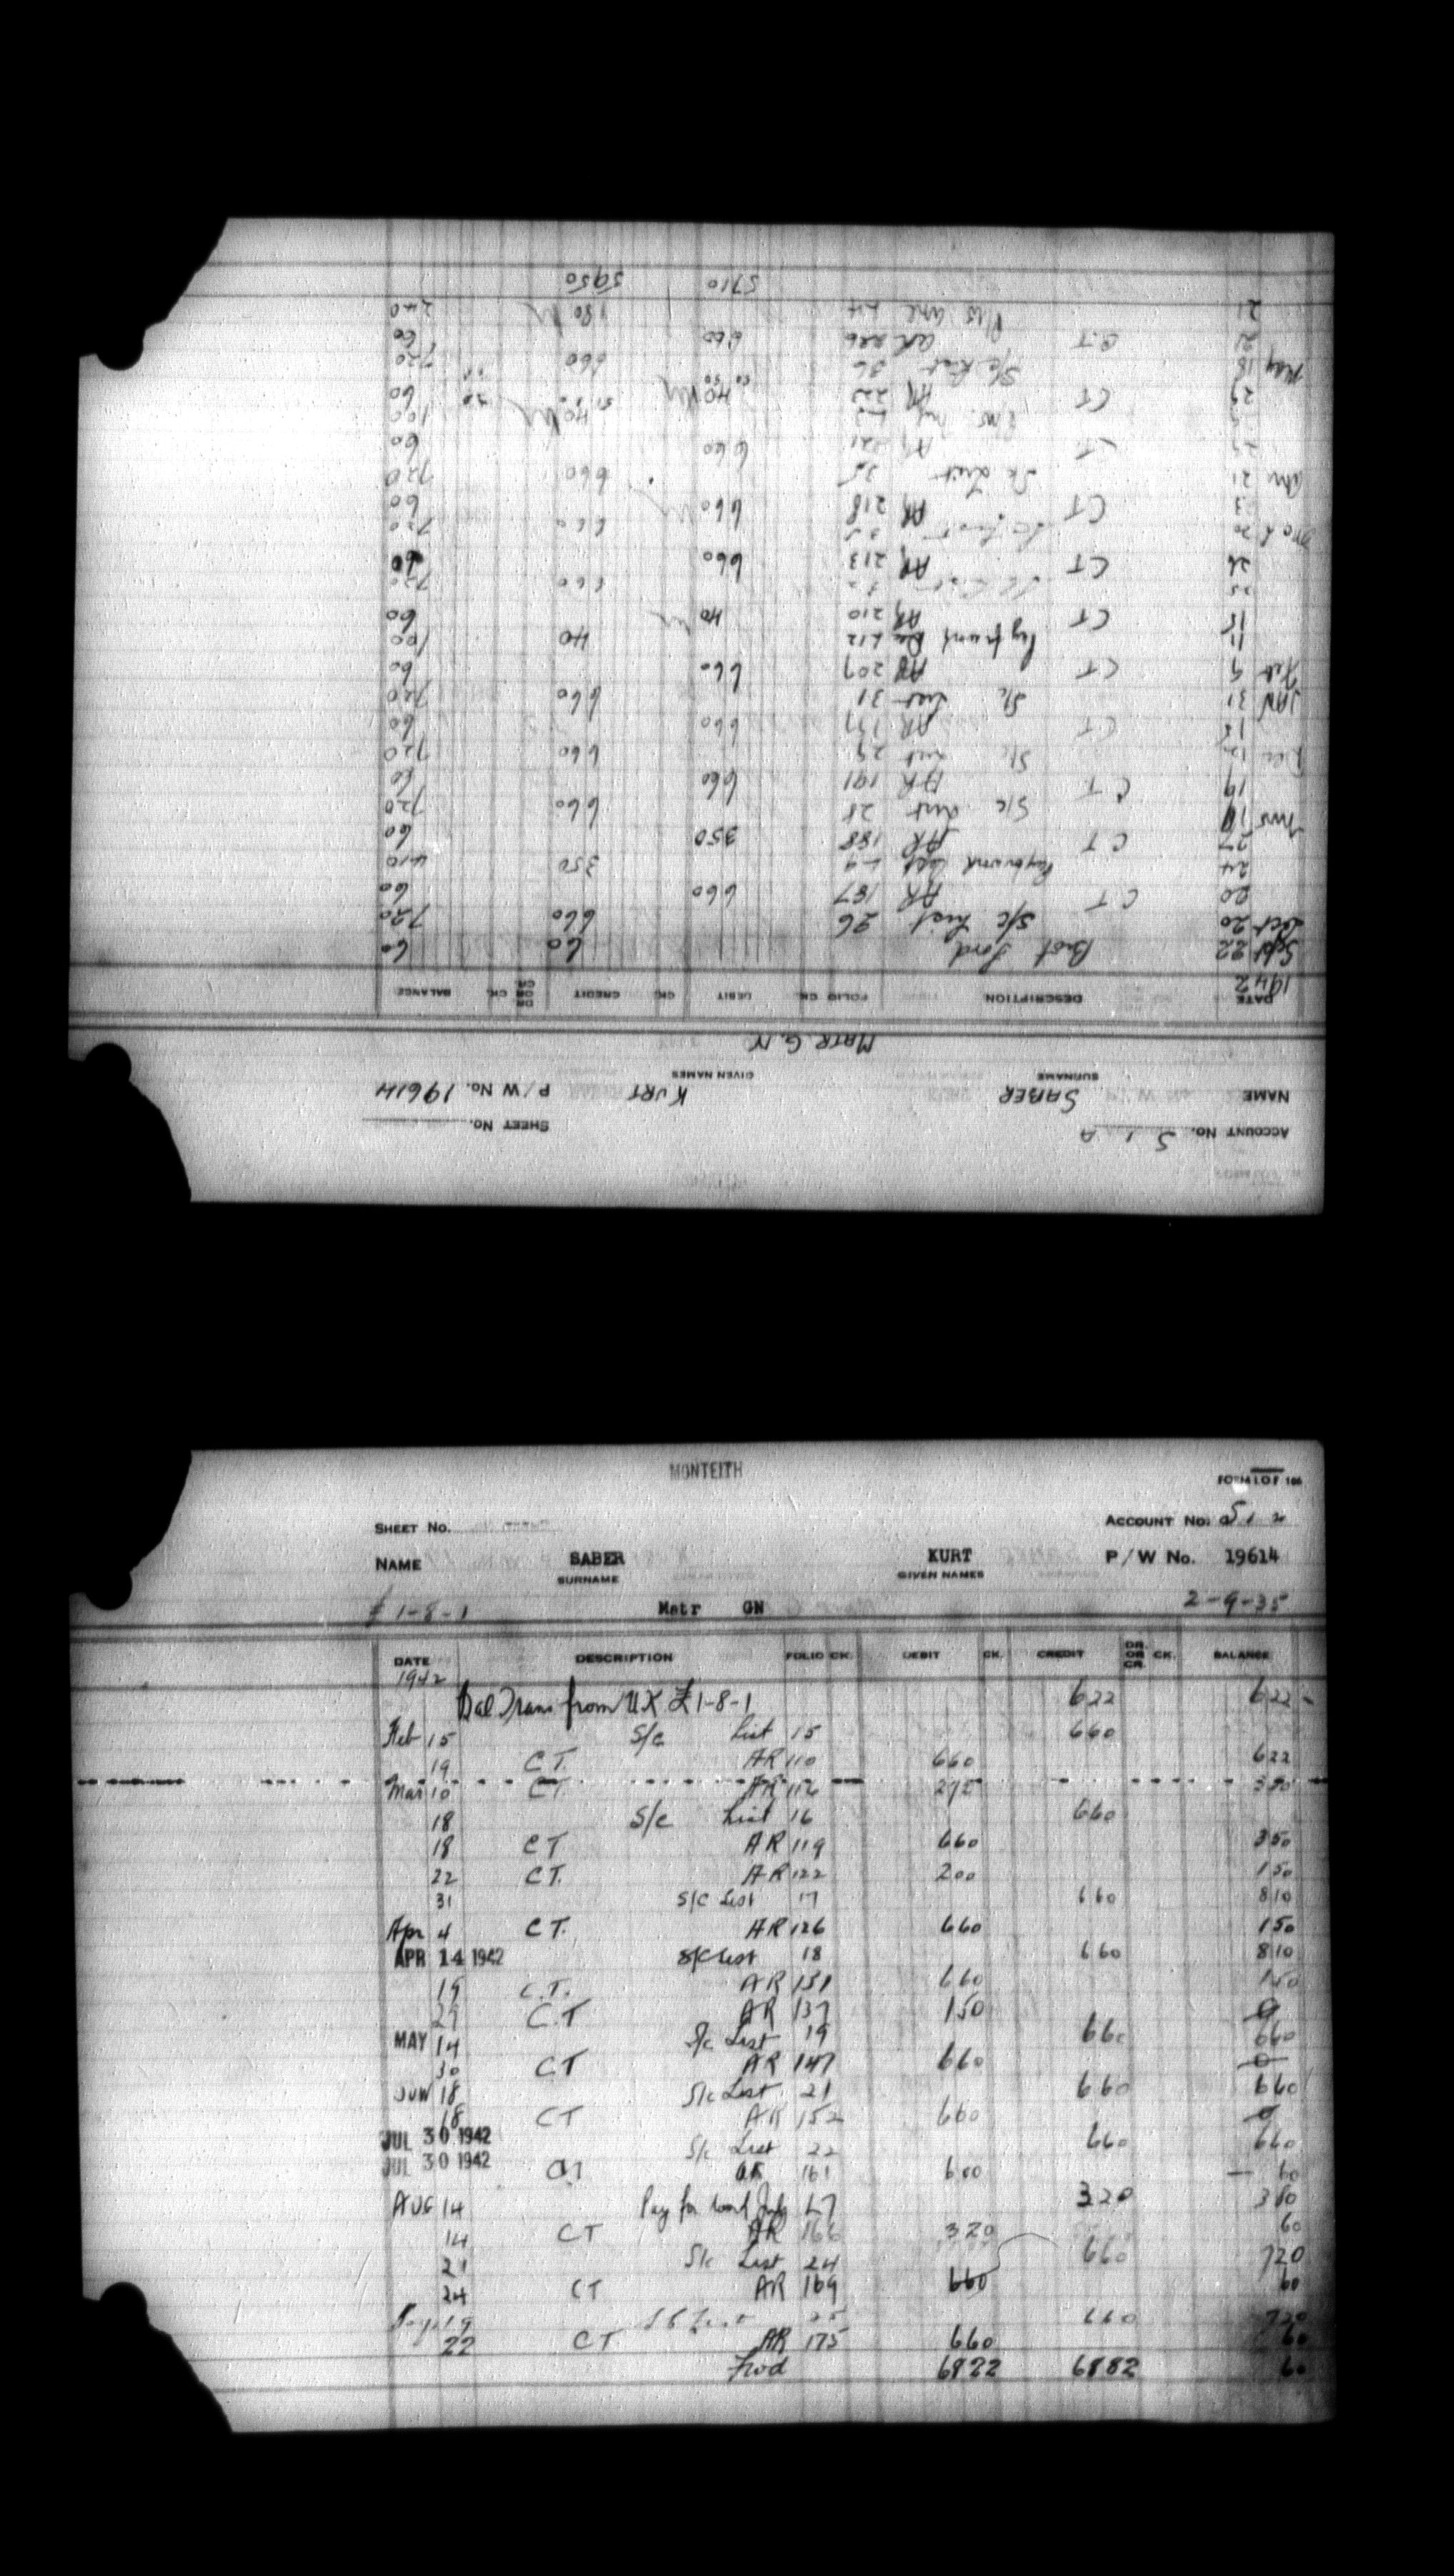 MONTEITH
FORM I.O.F. 166
SHEET No. ACCOUNT No. S 1 2
NAME SABER KURT P/W No. 19614
SURNAME GIVEN NAMES
£ 1-8-1 Matr GN 2-9-35
DATE DESCRIPTION FOLIO CK. DEBIT CK. CREDIT DR. OR CR. CK. BALANCE
1942
Bal Trans from UK £1-8-1 622 622
Feb 15 S/c List 15 660
19 C.T. AR 110 660 622
Mar 10 C.T. AR 116 272 350
18 S/c List 16 660
18 CT AR 119 660 350
22 C.T. AR 122 200 150
31 S/C List 17 660 810
Apr 4 C.T. AR 126 660 150
APR 14 1942 S/C List 18 660 810
19 C.T. AR 131 660 150
29 C.T AR 137 150 0
MAY 14 S/c List 19 660 660
30 CT AR 147 660 0
JUN 18 S/c List 21 660 660
18 CT AR 152 660 0
JUL 30 1942 S/c List 22 660 660
JUL 30 1942 CT AR 161 600 60
AUG 14 Pay for work July L7 320 380
14 CT AR 166 320 60
21 S/c List 24 660 720
24 CT AR 169 660 60
Sept 19 S C List 25 660 720
22 CT AR 175 660 60
Frwd 6822 6882 60
ACCOUNT No. S 1 A SHEET No.
NAME SABER KURT P/W No. 19614
SURNAME GIVEN NAMES
MATR G.N
DATE DESCRIPTION FOLIO CK. DEBIT CK. CREDIT DR OR CR CK. BALANCE
1942
Sept 22 Brot Ford 60 60
Oct 20 S/c List 26 660 720
20 CT AR 187 660 60
24 Pay work L9 350 410
27 CT AR 188 350 60
Nov S/c List 28 660 720
19 CT AR 191 660 60
Dec 12 S/c List 29 660 720
CT AR 197 660 60
JAN 31 S/c List 31 660 720
Feb 9 CT AR 207 660 60
11 Pay for work L12 40 100
15 CT AR 210 40 60
25 660 720
26 CT AR 213 660 60
20 660 720
23 CT AR 218 660 60
21 S/c List 35 660 720
CT AR 221 660 60
40 100
29 CT AR 223 40 60
May 18 S/c List 36 660 720
21 CT AR 226 660 60
21 180 240
5710 5950